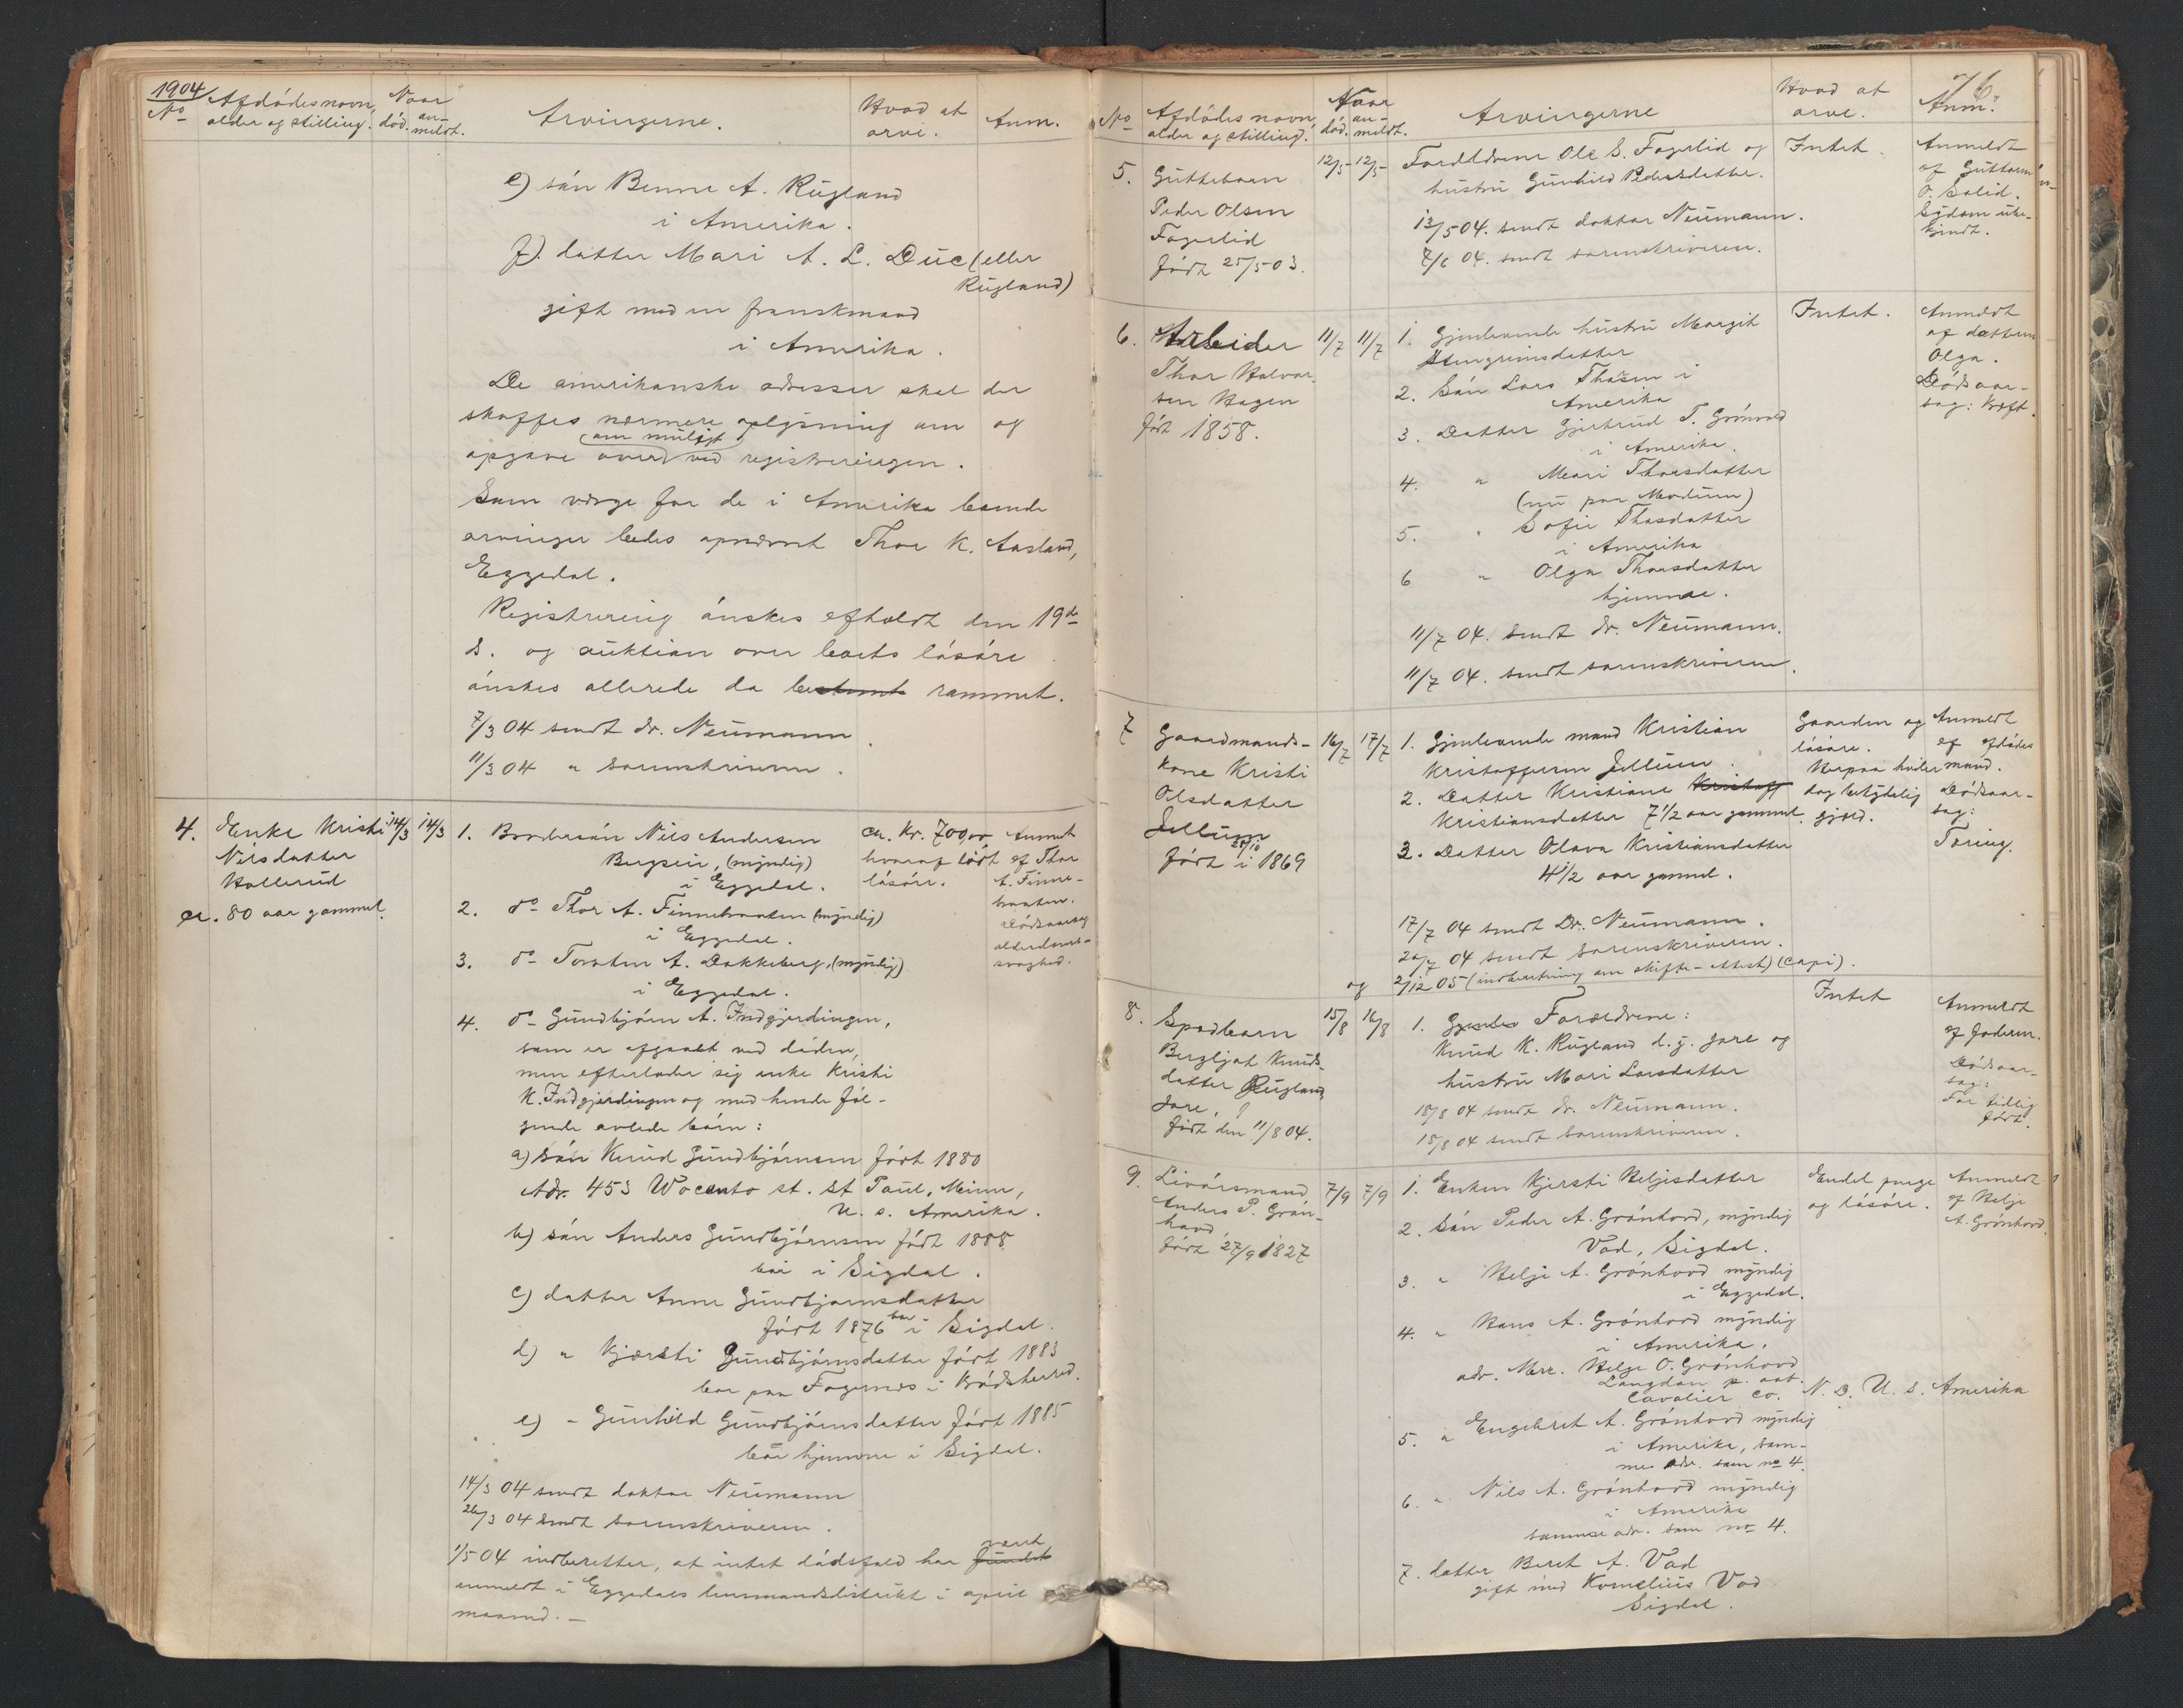 1904
No
Afdødes navn,
alder og stilling.
Naar
død.
an-
meldt.
Arvingerne.
Hvad at
arve.
Anm.
e) søn Benne A. Rugland
i Amerika.
f). datter Mari A. L. Duc (eller
Rugland)
gift med en franskmand
i Amerika.
De amerikanske adresser skal der
skaffes nærmere oplysning om og
om muligt
opgave over ved registreringen.
Som værge for de i Amerika boende
arvinger bedes opnævnt Thor K. Aasland,
Eggedal.
Registrering ønskes afholdt den 19de
d. og auktion over boets løsøre
ønskes allerede da berammet.
7/3 04 sendt dr. Neumann
11/3 04 " sorenskriveren.
4.
Enke Kristi
Nilsdatter
Hollerud
ca. 80 aar gammel.
14/3
14/3
1. Brodersøn Nils Andersen
Bergsein, (myndig)
i Eggedal.
2. do Thor A. Finnebraaten (myndig)
i Eggedal.
3. do Torsten A. Dokkeberg, (myndig)
i Eggedal.
4. do Gundbjørn A. Indgjerdingen,
som er afgaaet ved døden,
men efterlader sig enke Kristi
K. Indgjerdingen og med hende føl-
gende avlede børn:
a) søn Knud Gundbjørnsen født 1880
Adr. 453 Wocouto st. St Paul, Minn,
U. S. Amerika.
b) søn Anders Gundbjørnsen født 1888
bor i Sigdal.
c) datter Anne Gundbjørnsdatter
født 1876 bor i Sigdal.
d) " Kjersti Gundbjørnsdatter født 1883
bor paa Fagernes i Krødsherred.
e) " Gunhild Gundbjørnsdatter født 1885
bor hjemme i Sigdal.
14/3 04 sendt doktor Neumann
26/3 04 sendt sorenskriveren.
1/5 04 indberetter, at intet dødsfald har fundet
været
anmeldt i Eggedals lensmandsdistrikt i april
maaned. —
ca. Kr. 700,00
hvoraf lidt
løsøre.
Anmeldt
af Thor
A. Finne-
braaten.
Dødsaarsag
alderdoms-
svaghed.
76
No
Afdødes navn
alder og stilling.
Naar
død.
an-
meldt.
Arvingerne
Hvad at
arve.
Anm.
5.
Guttebarn
Peder Olsen
Fagerlid
født 25/5 03.
12/5
12/5
Forældrene Ole S. Fagerlid og
hustru Gunhild Pedersdatter.
13/5 04. sendt doktor Neumann.
4/6 04. sendt sorenskriveren.
Intet.
Anmeldt
af Guttorm
O. Solid.
Sygdom ube-
kjendt.
6.
Arbeider
Thor Halvor-
sen Hagen
født 1858.
11/7
11/7
1. Gjenlevende hustru Margit
Stengrimsdatter
2. Søn Lars Thorsen i
Amerika
3. Datter Gjertrud T. Grønvold
i Amerika.
4. " Mari Thorsdatter
(nu paa Modum)
5. " Sofie Thorsdatter
i Amerika
6 " Olga Thorsdatter
hjemme.
11/7 04. sendt dr. Neumann.
11/7 04. sendt sorenskriveren.
Intet.
Anmeldt
af datteren
Olga.
Dødsaar-
sag: Kræft.
7
Gaardmands-
kone Kristi
Olsdatter
Jellum
født 28/10 i 1869
16/7
17/7
1. Gjenlevende mand Kristian
Kristoffersen Jellum.
2. Datter Kristiane Kristoff
Kristiansdatter 7 1/2 aar gammel.
3. Datter Olava Kristiansdatter
4 1/2 aar gammel.
17/7 04 sendt Dr. Neumann.
20/7 04 sendt sorenskriveren.
og 2/12 05 (indberetning om skifte-attest) (Capi).
Gaarden og
løsøre.
Herpaa hviler
dog betydelig
gjeld.
Anmeldt
af afdødes
mand.
Dødsaar-
sag:
Tæring.
8.
Spædbarn
Bergljot Knuds-
datter Rugland
Jare,
født den 11/8 04.
15/8
16/8
1. Gjenlev Forældrene:
Knud K. Rugland d. y. Jare og
hustru Mari Larsdatter
18/8 04 sendt dr. Neumann.
18/8 04 sendt sorenskriveren.
Intet
Anmeldt
af faderen.
Dødsaar-
sag:
For tidlig
født.
9.
Livørsmand
Anders P. Grøn-
hovd,
født 27/9 1827
7/9
7/9
1. Enken Kjersti Heljesdatter
2. Søn Peder A. Grønhovd, myndig
Vad, Sigdal.
3. " Helje A. Grønhovd myndig
i Eggedal.
4. " Hans A. Grønhovd myndig
i Amerika.
adr. Mrr. Helge O. Grønhovd
Langdon p. oot.
Cavalier Co. N. D. U. S. Amerika
5. " Engebret A. Grønhovd myndig
i Amerika, sam-
me adr. som no 4.
6. " Nils A. Grønhovd myndig
i Amerika
samme adr. som no 4.
7. datter Beret A. Vad
gift med Kornelius Vad
Sigdal.
Endel penge
og løsøre.
Anmeldt
af Helje
A. Grønhovd.